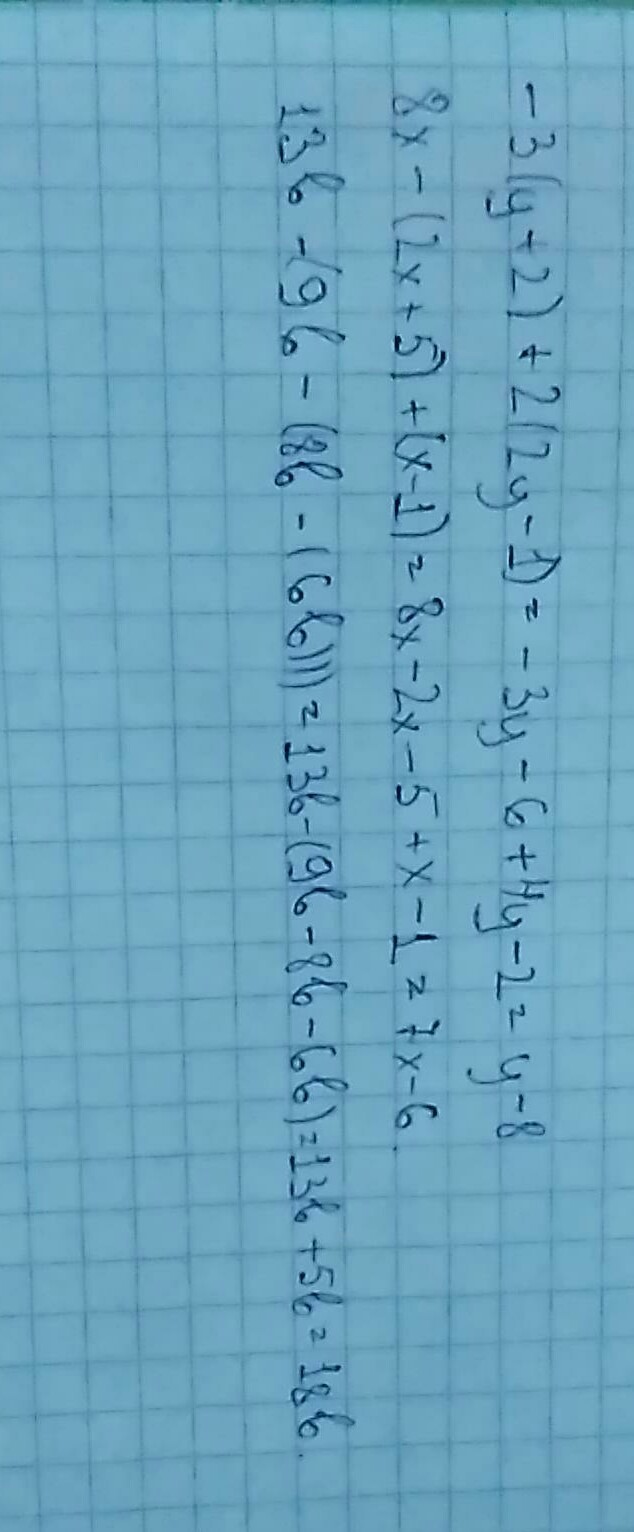 -3(y+2)+2(2y-1)=-3y-6+4y-2=y-8
8x-(2x+5)+(x-1)=8x-2x-5+x-1=7x-6.
13b-(9b-(8b-(6b)))=13b-(9b-8b-6b)=13b+5b=18b.